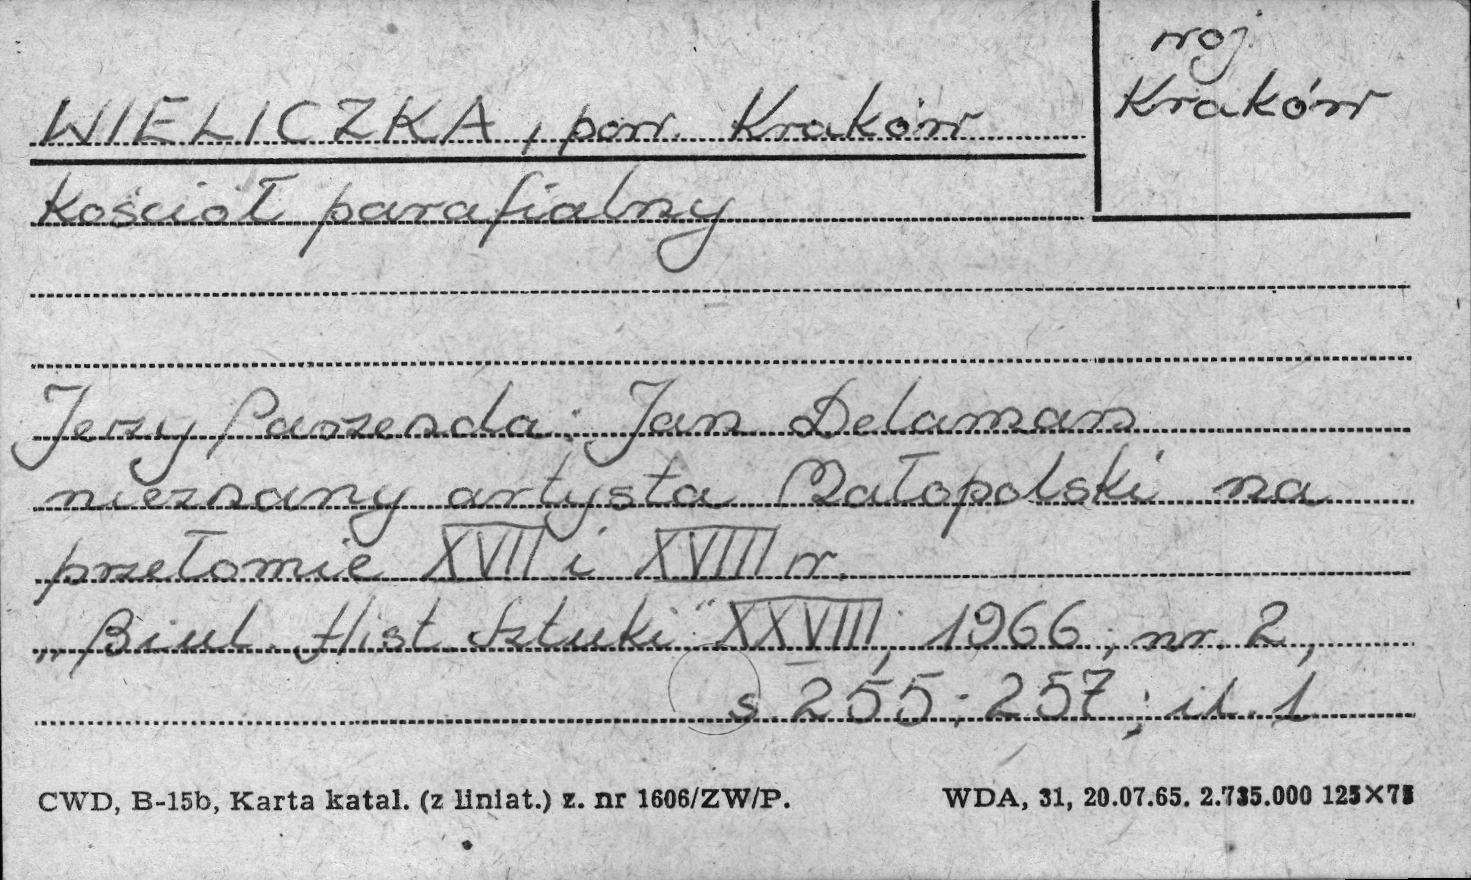 woj.
Kraków
WIELICZKA, pow. Kraków
Kościół parafialny
Jerzy Paszenda: Jan Delaman
nieznany artysta Małopolski na
przełomie XVII i XVIII w.
„Biul. Hist. Sztuki" XXVIII, 1966, nr. 2,
s. 255-257; il. 1
CWD, B-15b, Karta katal. (z liniat.) z. nr 1606/ZW/P.
WDA, 31, 20.07.65. 2.735.000 125×75